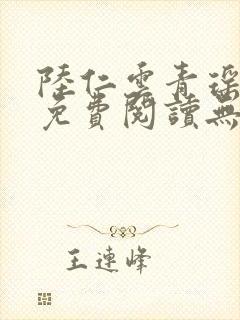 陸仁雲青瑶
免費閱讀無
王連峰